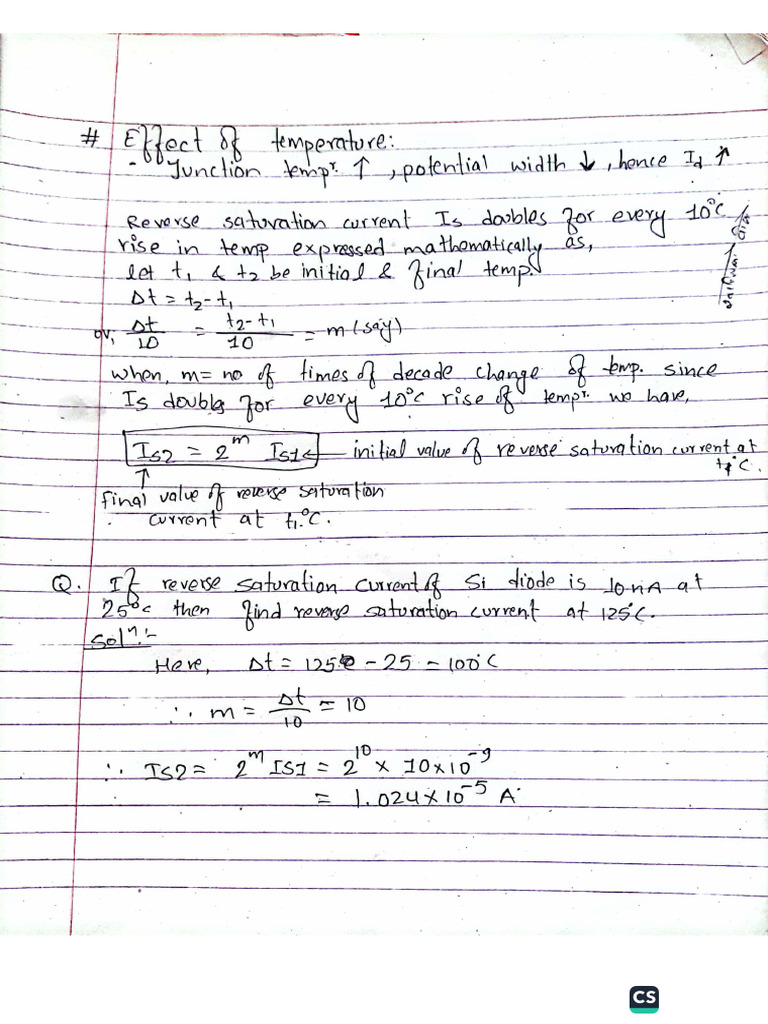 # Effect of temperature:
- Junction tempr. ↑, potential width ↓, hence Id ↑
Reverse saturation current Is doubles for every 10°C
rise in temp expressed mathematically as,
let t1 & t2 be initial & final temp.
Δt = t2-t1
or, Δt/10 = t2-t1/10 = m (say)
when, m = no of times of decade change of temp. since
Is doubles for every 10°C rise of tempr. we have,
IS2 = 2^m IS1 ← initial value of reverse saturation current at
t1°C.
↑
final value of reverse saturation
current at t1°C.
Q. If reverse saturation current of Si diode is 10nA at
25°C then find reverse saturation current at 125°C.
Solⁿ:-
Here, Δt = 125 - 25 - 100°C
∴ m = Δt/10 = 10
∴ IS2 = 2^m IS1 = 2^10 × 10×10^-9
= 1.024×10^-5 A.
CS